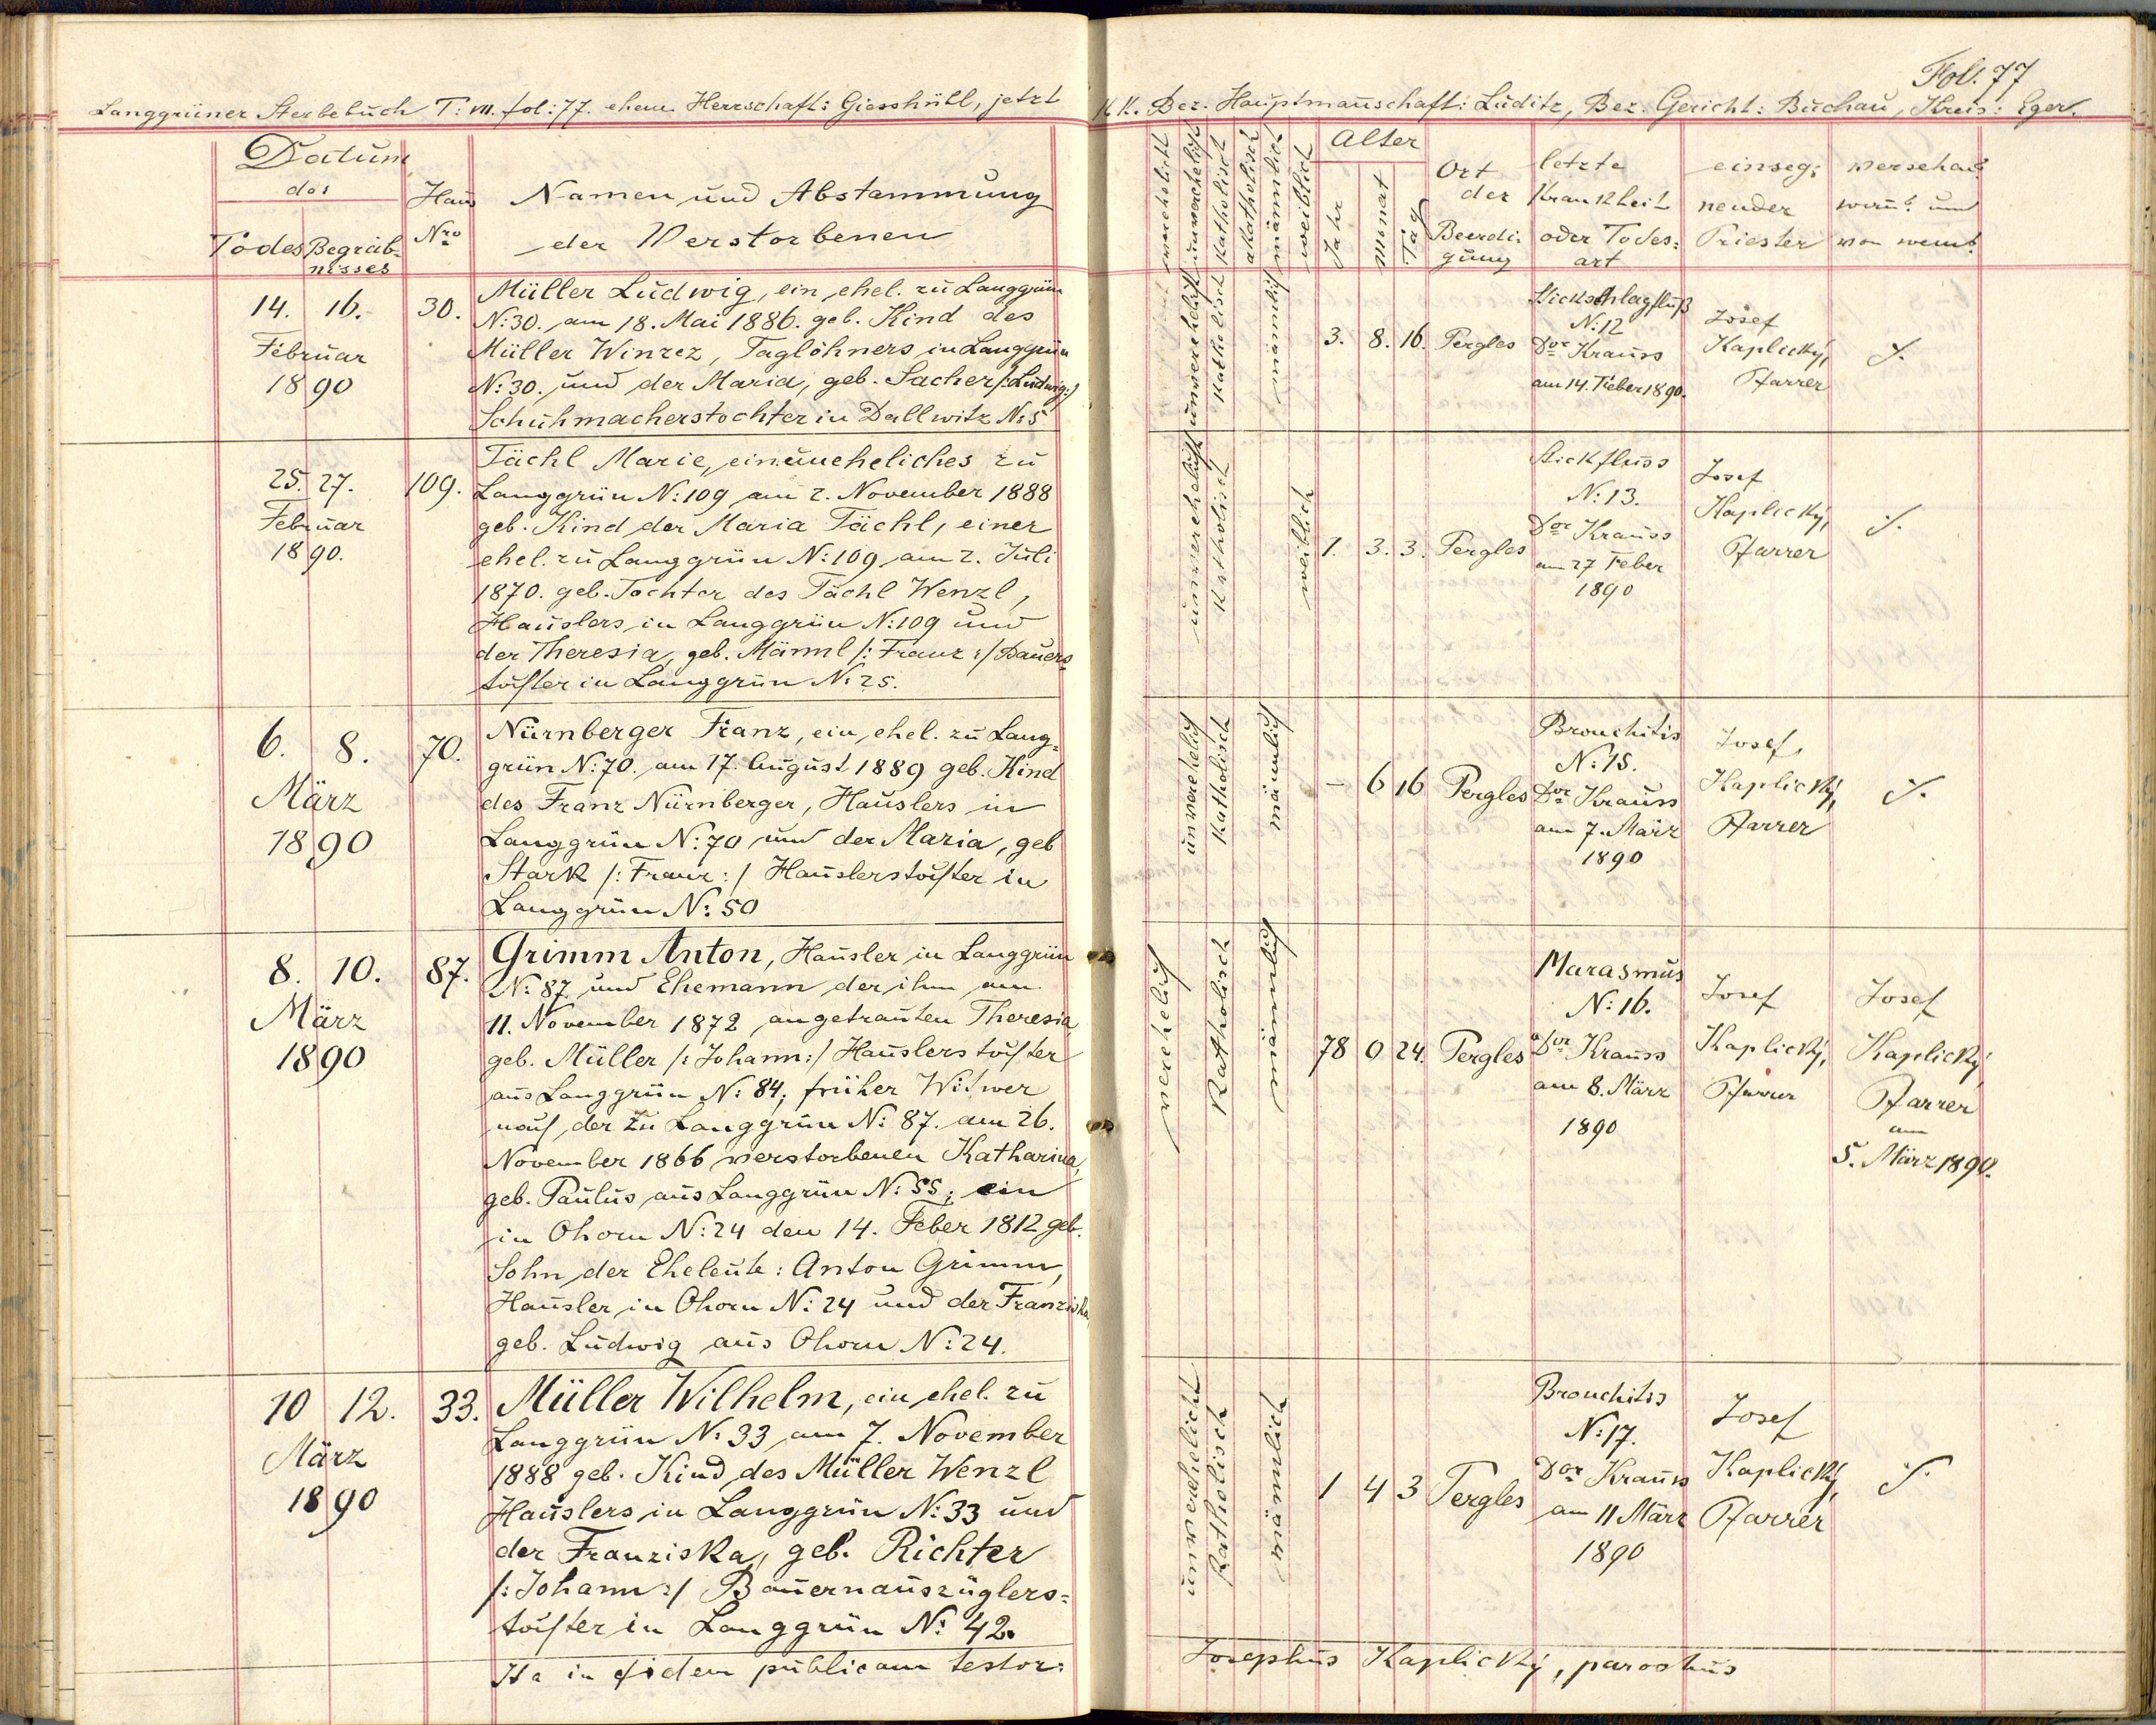 Fol. 77
Langgrüner Sterbebuch T: VII. fol: 77. ehem. Herrschaft: Giesshübl, jetzt K.K. Bez. Hauptmanschaft: Luditz, Bez. Gericht: Buchau, Kreis: Eger.
Datum
des
Todes Begräb-
nisses
Haus
Nro
Namen und Abstammung
der Verstorbenen
verehelicht
unverehelicht
katholisch
akatholisch
männlich
weiblich
Alter
Jahr
Monat
Tag
Ort
der
Beerdi-
gung
letzte
Krankheit
oder Todes:
art
einseg:
nender
Priester
versehen
wann? und
von wem?
14. 16.
Februar
1890
30.
Müller Ludwig, ein ehel. zu Langgrün
N: 30. am 18. Mai 1886. geb. Kind des
Müller Winzez, Taglöhners in Langgrün
N: 30. und der Maria, geb. Sacher /: Ludwig :/
Schuhmacherstochter in Dallwitz N: 5
unverehelicht
katholisch
männlich
3. 8. 16.
Pergles
Stickschlagfluß
N: 12
Dor Krauss
am 14. Feber 1890.
Josef
Kaplický,
Pfarrer
25. 27.
Februar
1890.
109.
Tächl Marie, ein uneheliches zu
Langgrün N: 109 am 2. November 1888
geb. Kind der Maria Tächl, einer
ehel. zu Langgrün N: 109 am 2. Juli
1870. geb. Tochter des Tächl Wenzl,
Häuslers in Langgrün N: 109 und
der Theresia, geb. Männl /: Franz :/ Bauers-
tochter in Langgrün N: 25.
unverehelicht
katholisch
weiblich
1. 3. 3.
Pergles
Stickfluss
N: 13.
Dor Krauss
am 27 Feber
1890
Josef
Kaplický,
Pfarrer
6. 8.
März
1890
70.
Nürnberger Franz, ein ehel. zu Lang-
grün N: 70. am 17. August 1889 geb. Kind
des Franz Nürnberger, Häuslers in
Langgrün N: 70 und der Maria, geb
Stark /: Franz :/ Häuslerstochter in
Langgrün N: 50
unverehelich
katholisch
männlich
– 6 16
Pergles
Bronchitis
N: 15.
Dor Krauss
am 7. März
1890
Josef
Kaplický,
Pfarrer
8. 10.
März
1890
87.
Grimm Anton, Häusler in Langgrün
N: 87 und Ehemann der ihm am
11. November 1872 angetrauten Theresia
geb. Müller /: Johann :/ Häuslerstochter
aus Langgrün N: 84, früher Witwer
nach der zu Langgrün N: 87. am 26.
November 1866 verstorbenen Katharina,
geb. Paulus aus Langgrün N: 55; ein
in Ohorn N: 24 den 14. Feber 1812 geb.
Sohn der Eheleute: Anton Grimm,
Häusler in Ohorn N: 24 und der Franziska,
geb. Ludwig aus Ohorn N: 24.
verehelich
katholisch
männlich
78 0 24.
Pergles
Marasmus
N: 16.
Dor Krauss
am 8. März
1890
Josef
Kaplický,
Pfarrer
Josef
Kaplický
Pfarrer
am
5. März 1890.
10 12.
März
1890
33.
Müller Wilhelm, ein ehel. zu
Langgrün N: 33 am 7. November
1888 geb. Kind des Müller Wenzl
Häuslers in Langgrün N: 33 und
der Franziska, geb. Richter
/: Johann :/ Bauernauszüglers-
tochter in Langgrün N: 42.
unverehelicht
katholisch
männlich
1 4 3
Pergles
Bronchitis
N: 17.
Dor Krauss
am 11 März
1890
Josef
Kaplický,
Pfarrer
Ita in fidem publicam testor: Josephus Kaplický, parochus